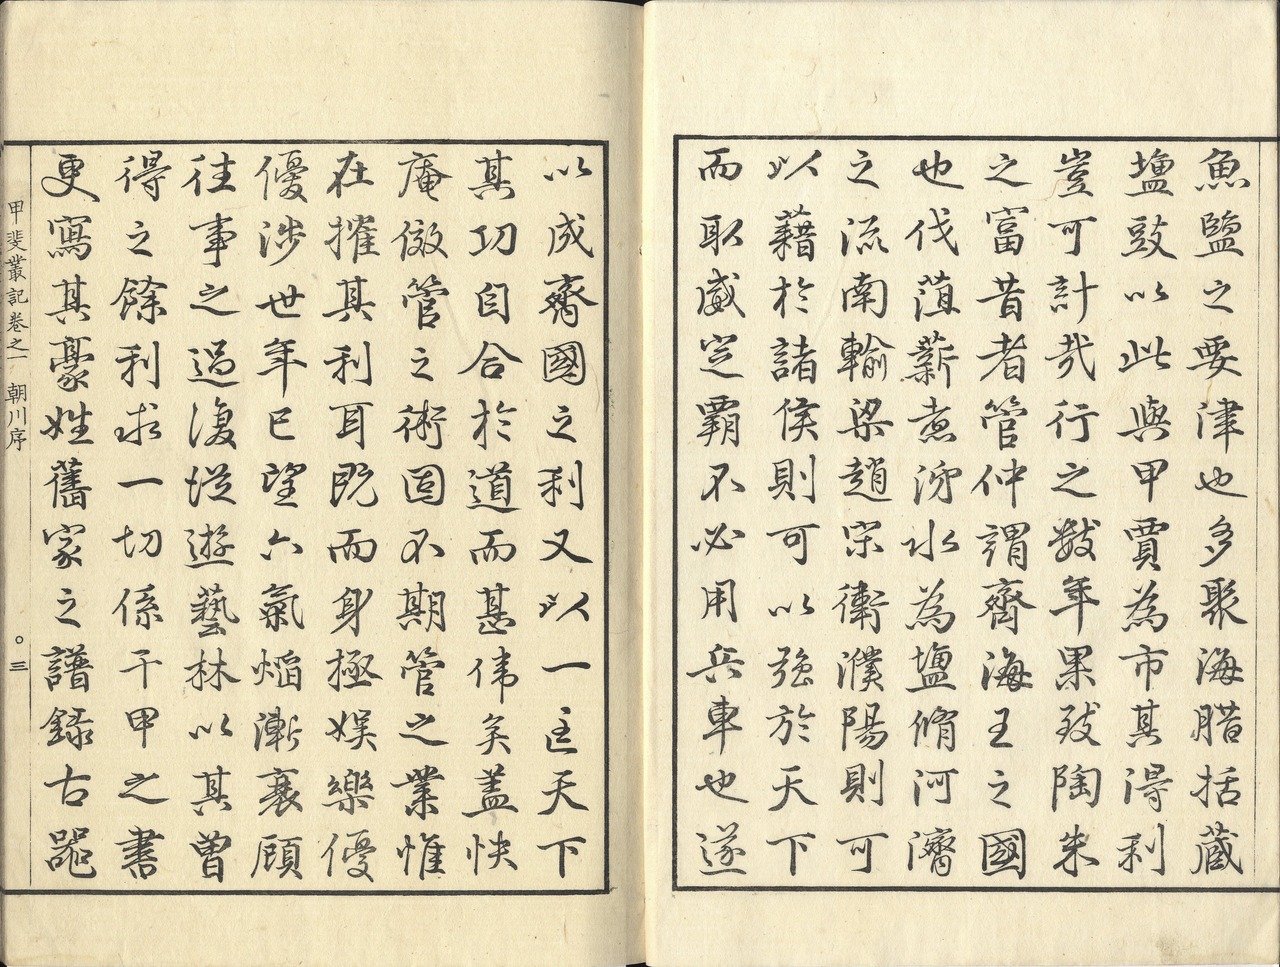 魚鹽之要津也多聚海腊括蔵
塩豉以此與甲賈為市其得利
豈可計哉行之數年果致陶朱
之富昔者管仲謂齊海王之國
也伐菹薪煮沸水為塩脩河濟
之流南輸梁趙宋衛濮陽則可
以藉於諸侯則可以強於天下
而取威定覇不必用兵車也遂
以成齊國之利又以一匡天下
其功自合於道而甚偉矣蓋怏
庵倣管之術固不期管之業惟
在搉其利耳既而身極娯樂優
優渉世年已望六氣焰漸衰顧
往事之過復従遊藝林以其曽
得之餘利求一切係于甲之書
更寫其豪姓舊家之譜録古器
甲斐叢記巻之一 朝川序 ○三